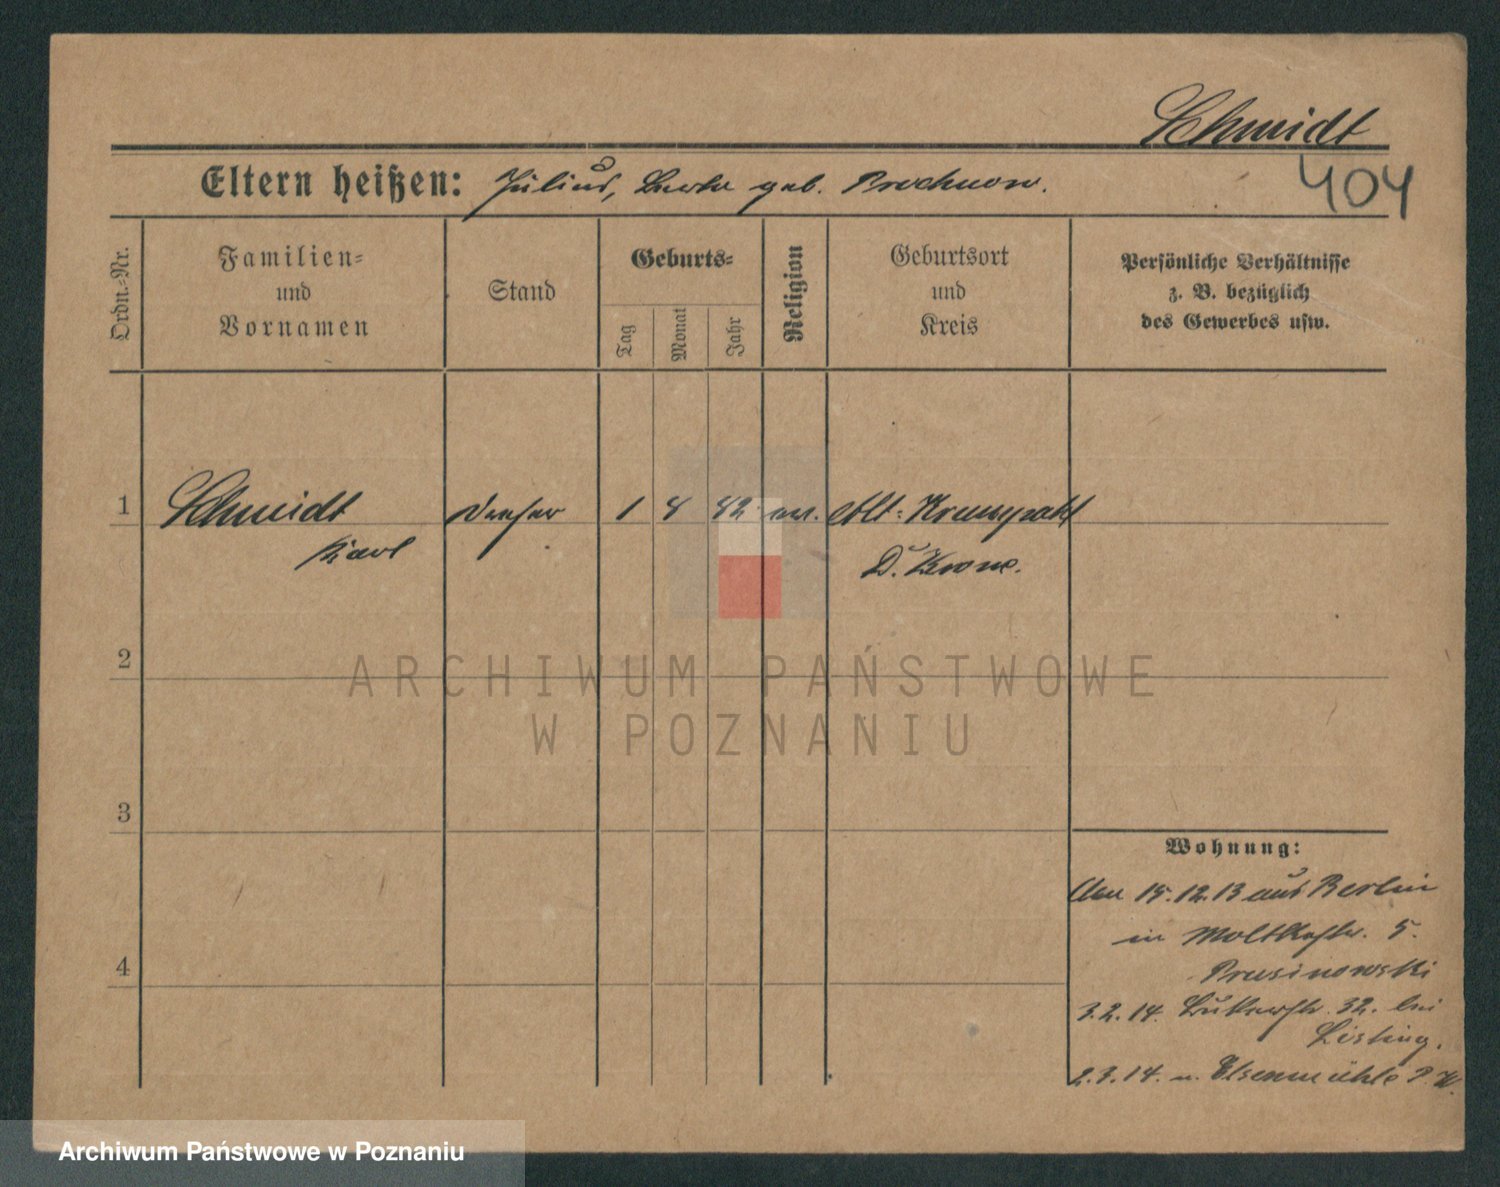 Schmidt
Eltern heißen: Julius, Berta geb. Prochnow.
404
Ordn.-Nr.
Familien-
und
Vornamen
Stand
Geburts-
Tag
Monat
Jahr
Religion
Geburtsort
und
Kreis
Persönliche Verhältnisse
z. B. bezüglich
des Gewerbes usw.
1 Schmidt Dreher 1 8 82 ev. Alt-
Karl D. Krone.
2
ARCHIWUM PAŃSTWOWE
W POZNANIU
3
Wohnung:
15.12.13 aus Berlin
in Moltkestr. 5.
Prusinowski
4
3.2.14. 32. bei
Listing.
2.3.14. n. Elsenmühle
Archiwum Państwowe w Poznaniu